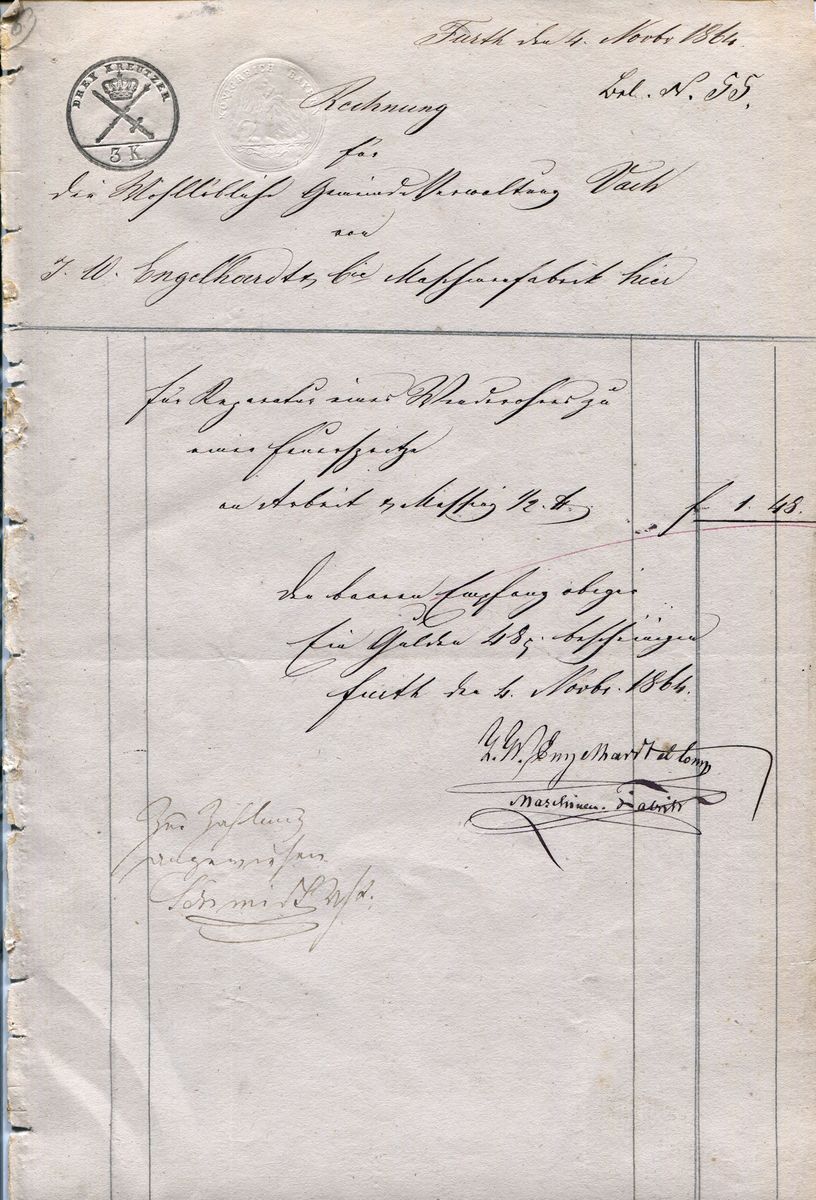 Fürth den 4. Novbr 1864.
Bel. N. 55.
DREY KREUTZER
3 K.
KOENIGREICH BAYERN
Rechnung
für
die Wohllöbliche Gemeinde Verwaltung Vach
von
J. W. Engelhardt & Cie Maschinenfabrik hier
für Reparatur eines Wenderohres zu
einer Feuerspritze
an Arbeit & Messing ½ ℔.
f 1. 48.
Den baaren Empfang obiger
Ein Gulden 48 bescheinigen
Fürth den 4. Novbr. 1864.
J. W. Engelhardt & Comp
Maschinen-Fabrik
Zur Zahlung
angewiesen
Schmidt